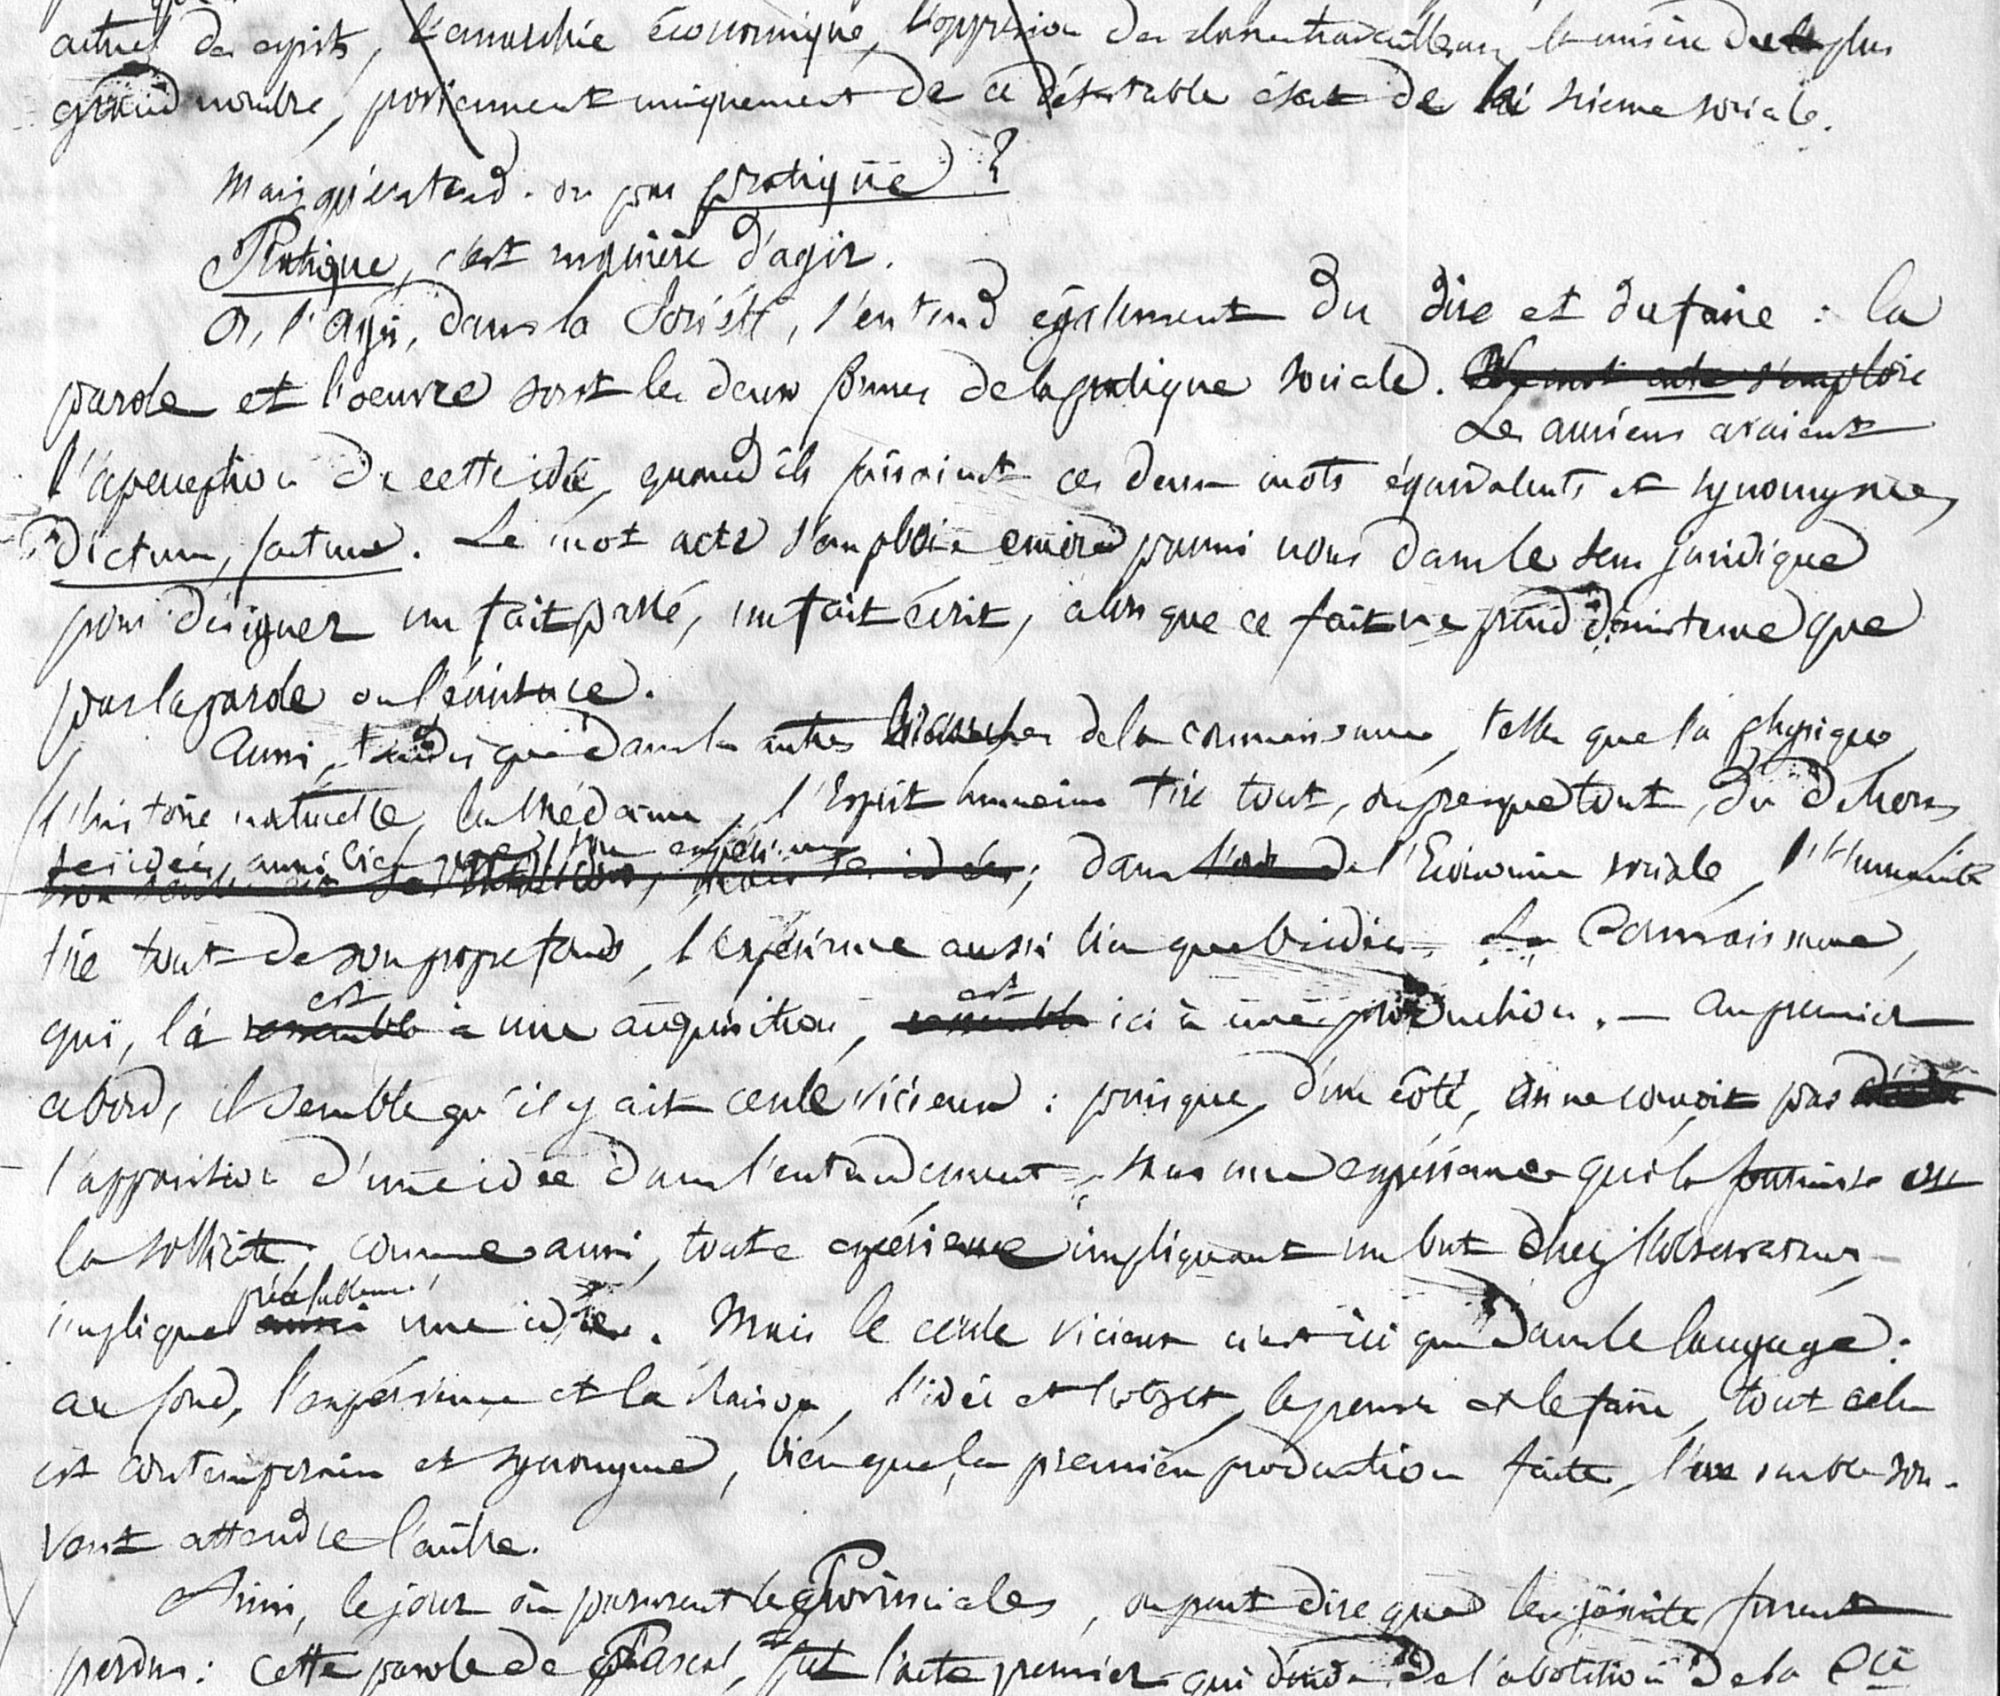 actuel des esprits, l'anarchie économique, l'oppression des classes travailleuses, la misère du plus
grand nombre, proviennent uniquement de ce détestable état de la science sociale.
Mais qu'entend-on par pratique ?
Pratique, c'est manière d'agir.
Or, l'Agir, dans la Société, s'entend également du dire et du faire : la
parole et l'oeuvre sont les deux formes de la pratique sociale. Le mot acte s'emploie
Les anciens avaient
l'aperception de cette idée, quand ils faisaient ces deux mots équivalents et synonymes,
dictum, factum. Le mot acte s'emploie encore parmi nous dans le sens juridique
pour désigner un fait parlé, un fait écrit, alors que ce fait ne prend d'existence que
par la parole ou l'écriture.
Aussi, tandis que dans les autres branches de la connaissance, telles que la physique,
l'histoire naturelle, la médecine, l'Esprit humain tire tout, ou presque tout, du dehors
ses idées, aussi bien que son expérience
; dans l'ordre de l'Economie sociale, l'Humanité
tire tout de son propre fonds, l'expérience aussi bien que l'idée. La Connaissance,
est est
qui, là ressemble à une acquisition, ressemble ici à une production. — Au premier
abord, il semble qu'il y ait cercle vicieux : puisque, d'un côté, on ne conçoit pas
l'apparition d'une idée dans l'entendement, sans une expérience qui la fournisse ou
la sollicite, comme aussi, toute expérience impliquant un but chez l'observateur,
préalablement
implique aussi une idée. Mais le cercle vicieux n'est ici que dans le langage :
au fond, l'expérience et la Raison, l'idée et l'objet, le penser et le faire, tout cela
est contemporain et synonyme, bien que, la première production faite, l'un semble sou-
vent attendre l'autre.
Ainsi, le jour où parurent les Provinciales, on peut dire que les jésuites furent
perdus : cette parole de Pascal, fut l'acte premier qui décida de l'abolition de la Cie